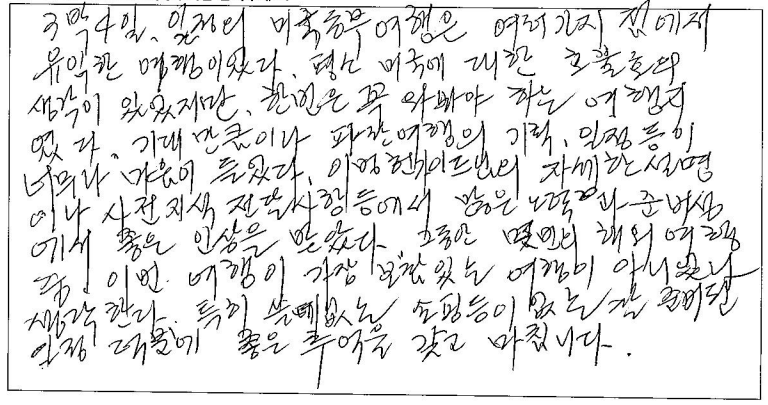 3박4일. 일정의 미국동부여행은 여러가지 점에서
유익한 여행이었다. 평소 미국에 대한 호불호의
생각이 있었지만, 한번은 꼭 와봐야 하는 여행지
였다. 기대 만큼이나 파란여행의 기획, 일정등이
너무나 마음에 들었다. 이영현가이드님의 자세한 설명
이나 사전지식 전달사항등에서 많은 노력과 준비성
에서 좋은 인상을 받았다. 그동안 몇번의 해외 여행
중, 이번 여행이 가장 보람있는 여행이 아니었나
생각한다. 특히 쓸데없는 쇼핑등이 없는 잘 준비된
일정 덕분에 좋은 추억을 갖고 마칩니다.